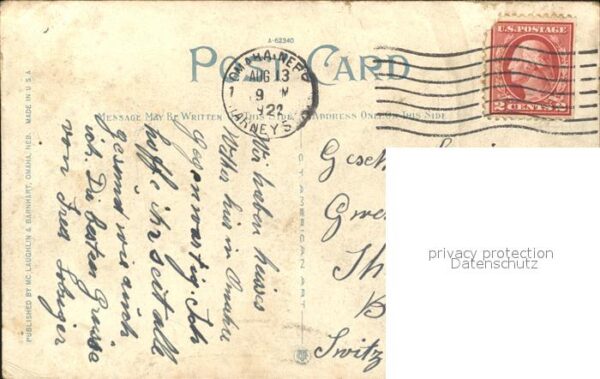 A-62340
POST CARD
OMAHA, NEBR.
AUG 13
9 M
1922
HARNEY S
U.S. POSTAGE
2 CENTS 2
MESSAGE MAY BE WRITTEN ON THIS SIDE
ADDRESS ONLY ON THIS SIDE
PUBLISHED BY MC LAUGHLIN & BARNHART, OMAHA, NEB. MADE IN U.S.A.
Wir haben heises
Wetter hier in Omaha
Gegenwärtig. Ich
hoffe ihr seit alle
gesund wie auch
ich. Die besten Grüsse
von Fred
AMERICAN ART
Gesch
Gwe
Th
B
Switz
privacy protection
Datenschutz